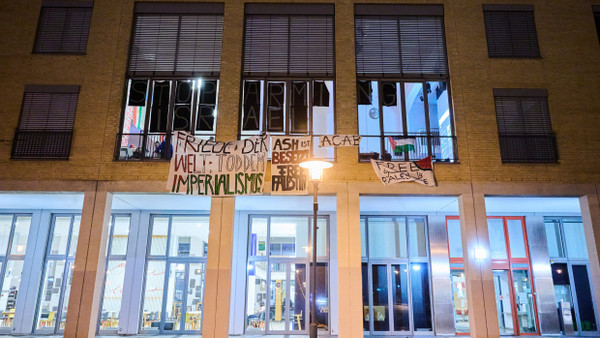 STOP ARMING
ISRAEL
FRIEDE DER
WELT: TOD DEM
IMPERIALISMUS
ASH IST
BESETZT
FREE
ACAB
FREE